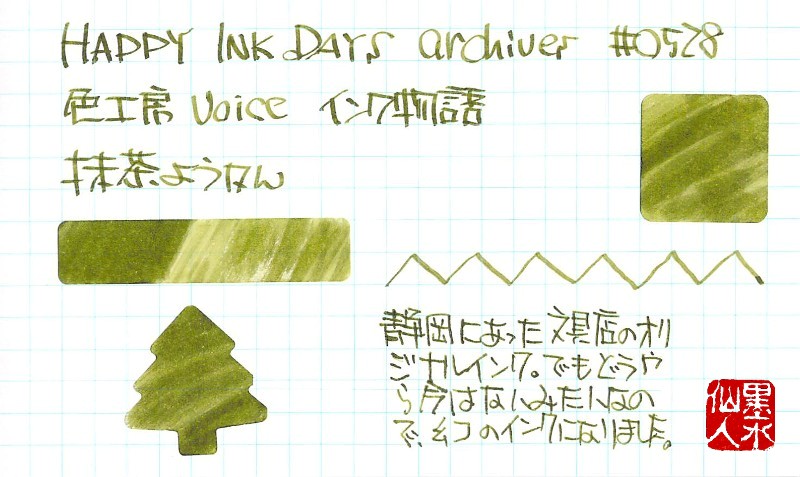 HAPPY INK DAYS archiver #0528
色工房 Voice インク物語
抹茶ようかん
静岡にあった文具店のオリ
ジナルインク。でもどうや
ら今はないみたいなの
で、幻のインクになりました。
墨水
仙人